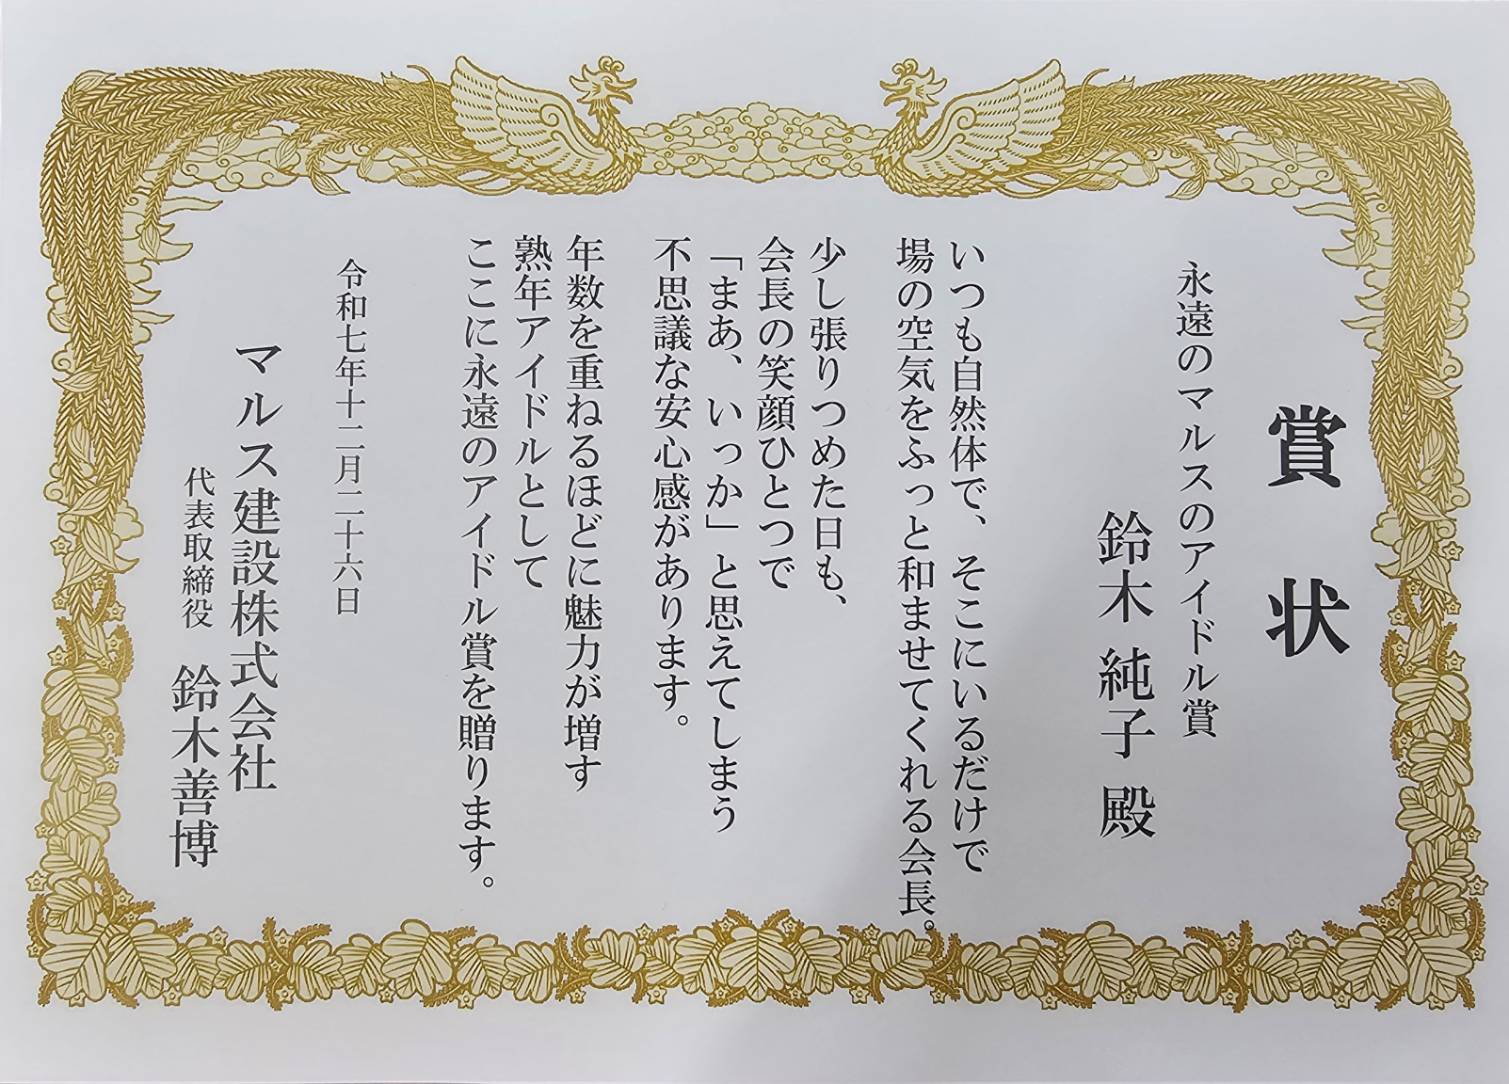 賞状
永遠のマルスのアイドル賞
鈴木 純子 殿
いつも自然体で、そこにいるだけで
場の空気をふっと和ませてくれる会長。
少し張りつめた日も、
会長の笑顔ひとつで
「まあ、いっか」と思えてしまう
不思議な安心感があります。
年数を重ねるほどに魅力が増す
熟年アイドルとして
ここに永遠のアイドル賞を贈ります。
令和七年十二月二十六日
マルス建設株式会社
代表取締役 鈴木善博